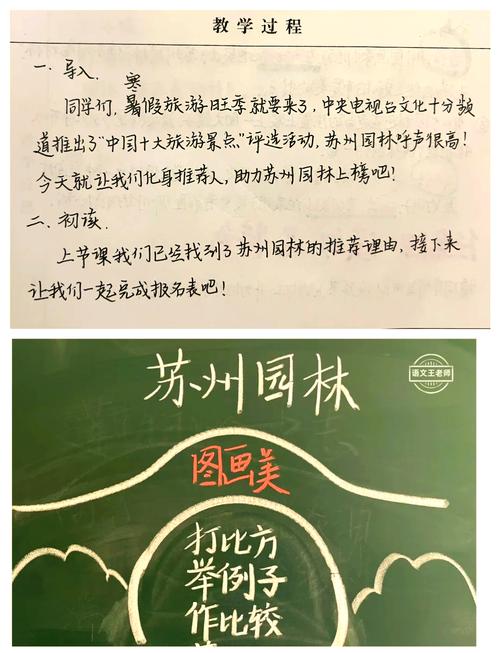 教学过程
一、导入.
寒
同学们,暑假旅游旺季就要来了,中央电视台文化十分频
道推出了"中国十大旅游景点"评选活动,苏州园林呼声很高!
今天就让我们化身推荐人,助力苏州园林上榜吧!
二、初读.
上节课我们已经找到了苏州园林的推荐理由,接下来
让我们一起完成报名表吧!
苏州园林
语文王老师
图画美
打比方
举例子
作比较